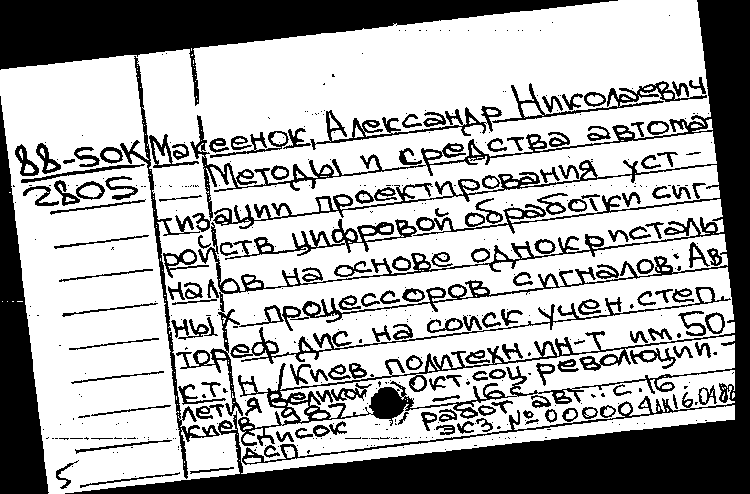 88-50К Макеенок, Александр Николаевич
2805 Методы и средства автома
тизации проектирования уст-
ройств цифровой обработки сиг-
налов на основе однокристаль
ных процессоров сигналов: Ав-
тореф. дис. на соиск. учен. степ.
к.т.н /Киев. политехн. ин-т им. 50-
летия Великой Окт. соц. революции. -
Киев 1987. - 16с
Список работ. авт.: с. 16
ДСП. экз. № 000004
5